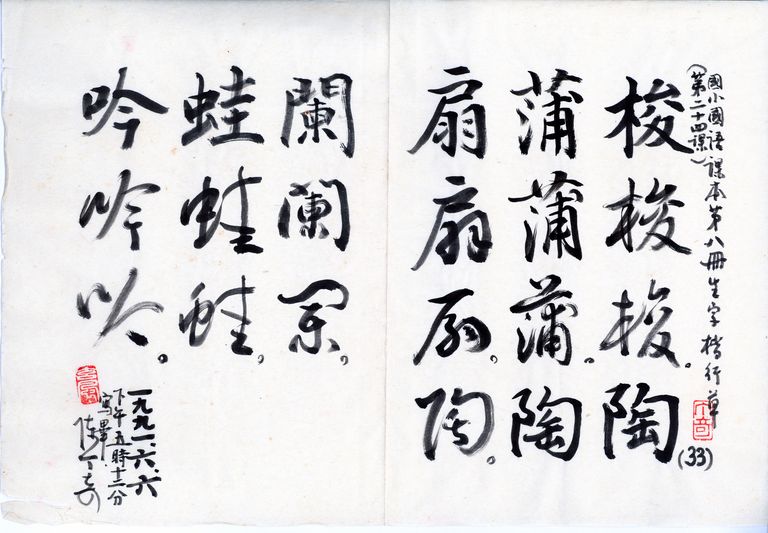 國小國語課本第八冊生字楷行草
(第二十四課)
(33)
梭梭梭。陶
蒲蒲蒲。陶
扇扇扇。陶。
闌闌闌。
蛙蛙蛙。
吟吟吟。
一九九一、六、六
下午五時十二分
寫畢 陳丁奇